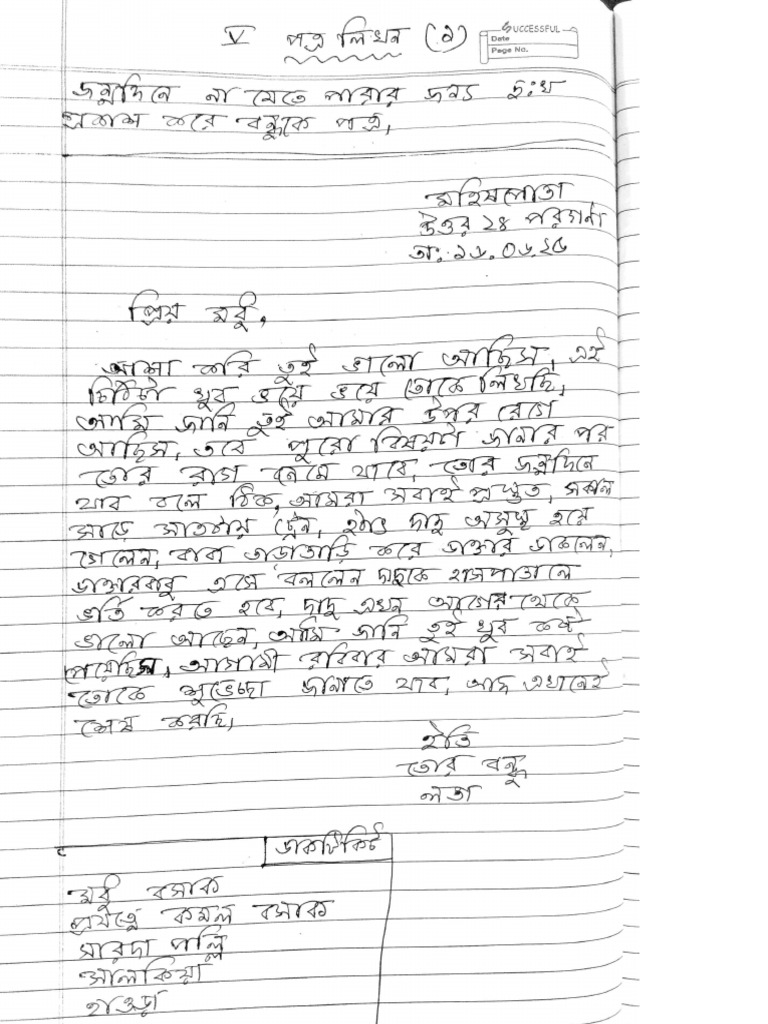 V পত্র লিখন (১)
SUCCESSFUL
Date
Page No.
জন্মদিনে না যেতে পারার জন্য দুঃখ
প্রকাশ করে বন্ধুকে পত্র,
মহিষপোতা
উত্তর ২৪ পরগনা
তাং ১৬.০৬.২৫
প্রিয় মধু,
আশা করি তুই ভালো আছিস, এই
চিঠিটা খুব ভয়ে ভয়ে তোকে লিখছি,
আমি জানি তুই আমার উপর রেগে
আছিস, তবে পুরো বিষয়টা জানার পর
তোর রাগ কমে যাবে, তোর জন্মদিনে
যাব বলে ঠিক, আমরা সবাই প্রস্তুত, সকাল
সাড়ে সাতটায় ট্রেন, হঠাৎ দাদু অসুস্থ হয়ে
গেলেন, বাবা তাড়াতাড়ি করে ডাক্তার ডাকলেন,
ডাক্তারবাবু এসে বললেন দাদুকে হাসপাতালে
ভর্তি করতে হবে, দাদু এখন আগের থেকে
ভালো আছেন, আমি জানি তুই খুব কষ্ট
পেয়েছিস, আগামী রবিবার আমরা সবাই
তোকে শুভেচ্ছা জানাতে যাব, আজ এখানেই
শেষ করছি,
ইতি
তোর বন্ধু
লতা
ডাকটিকিট
মধু বসাক
প্রযত্নে কমল বসাক
সারদা পল্লি
সালকিয়া
হাওড়া